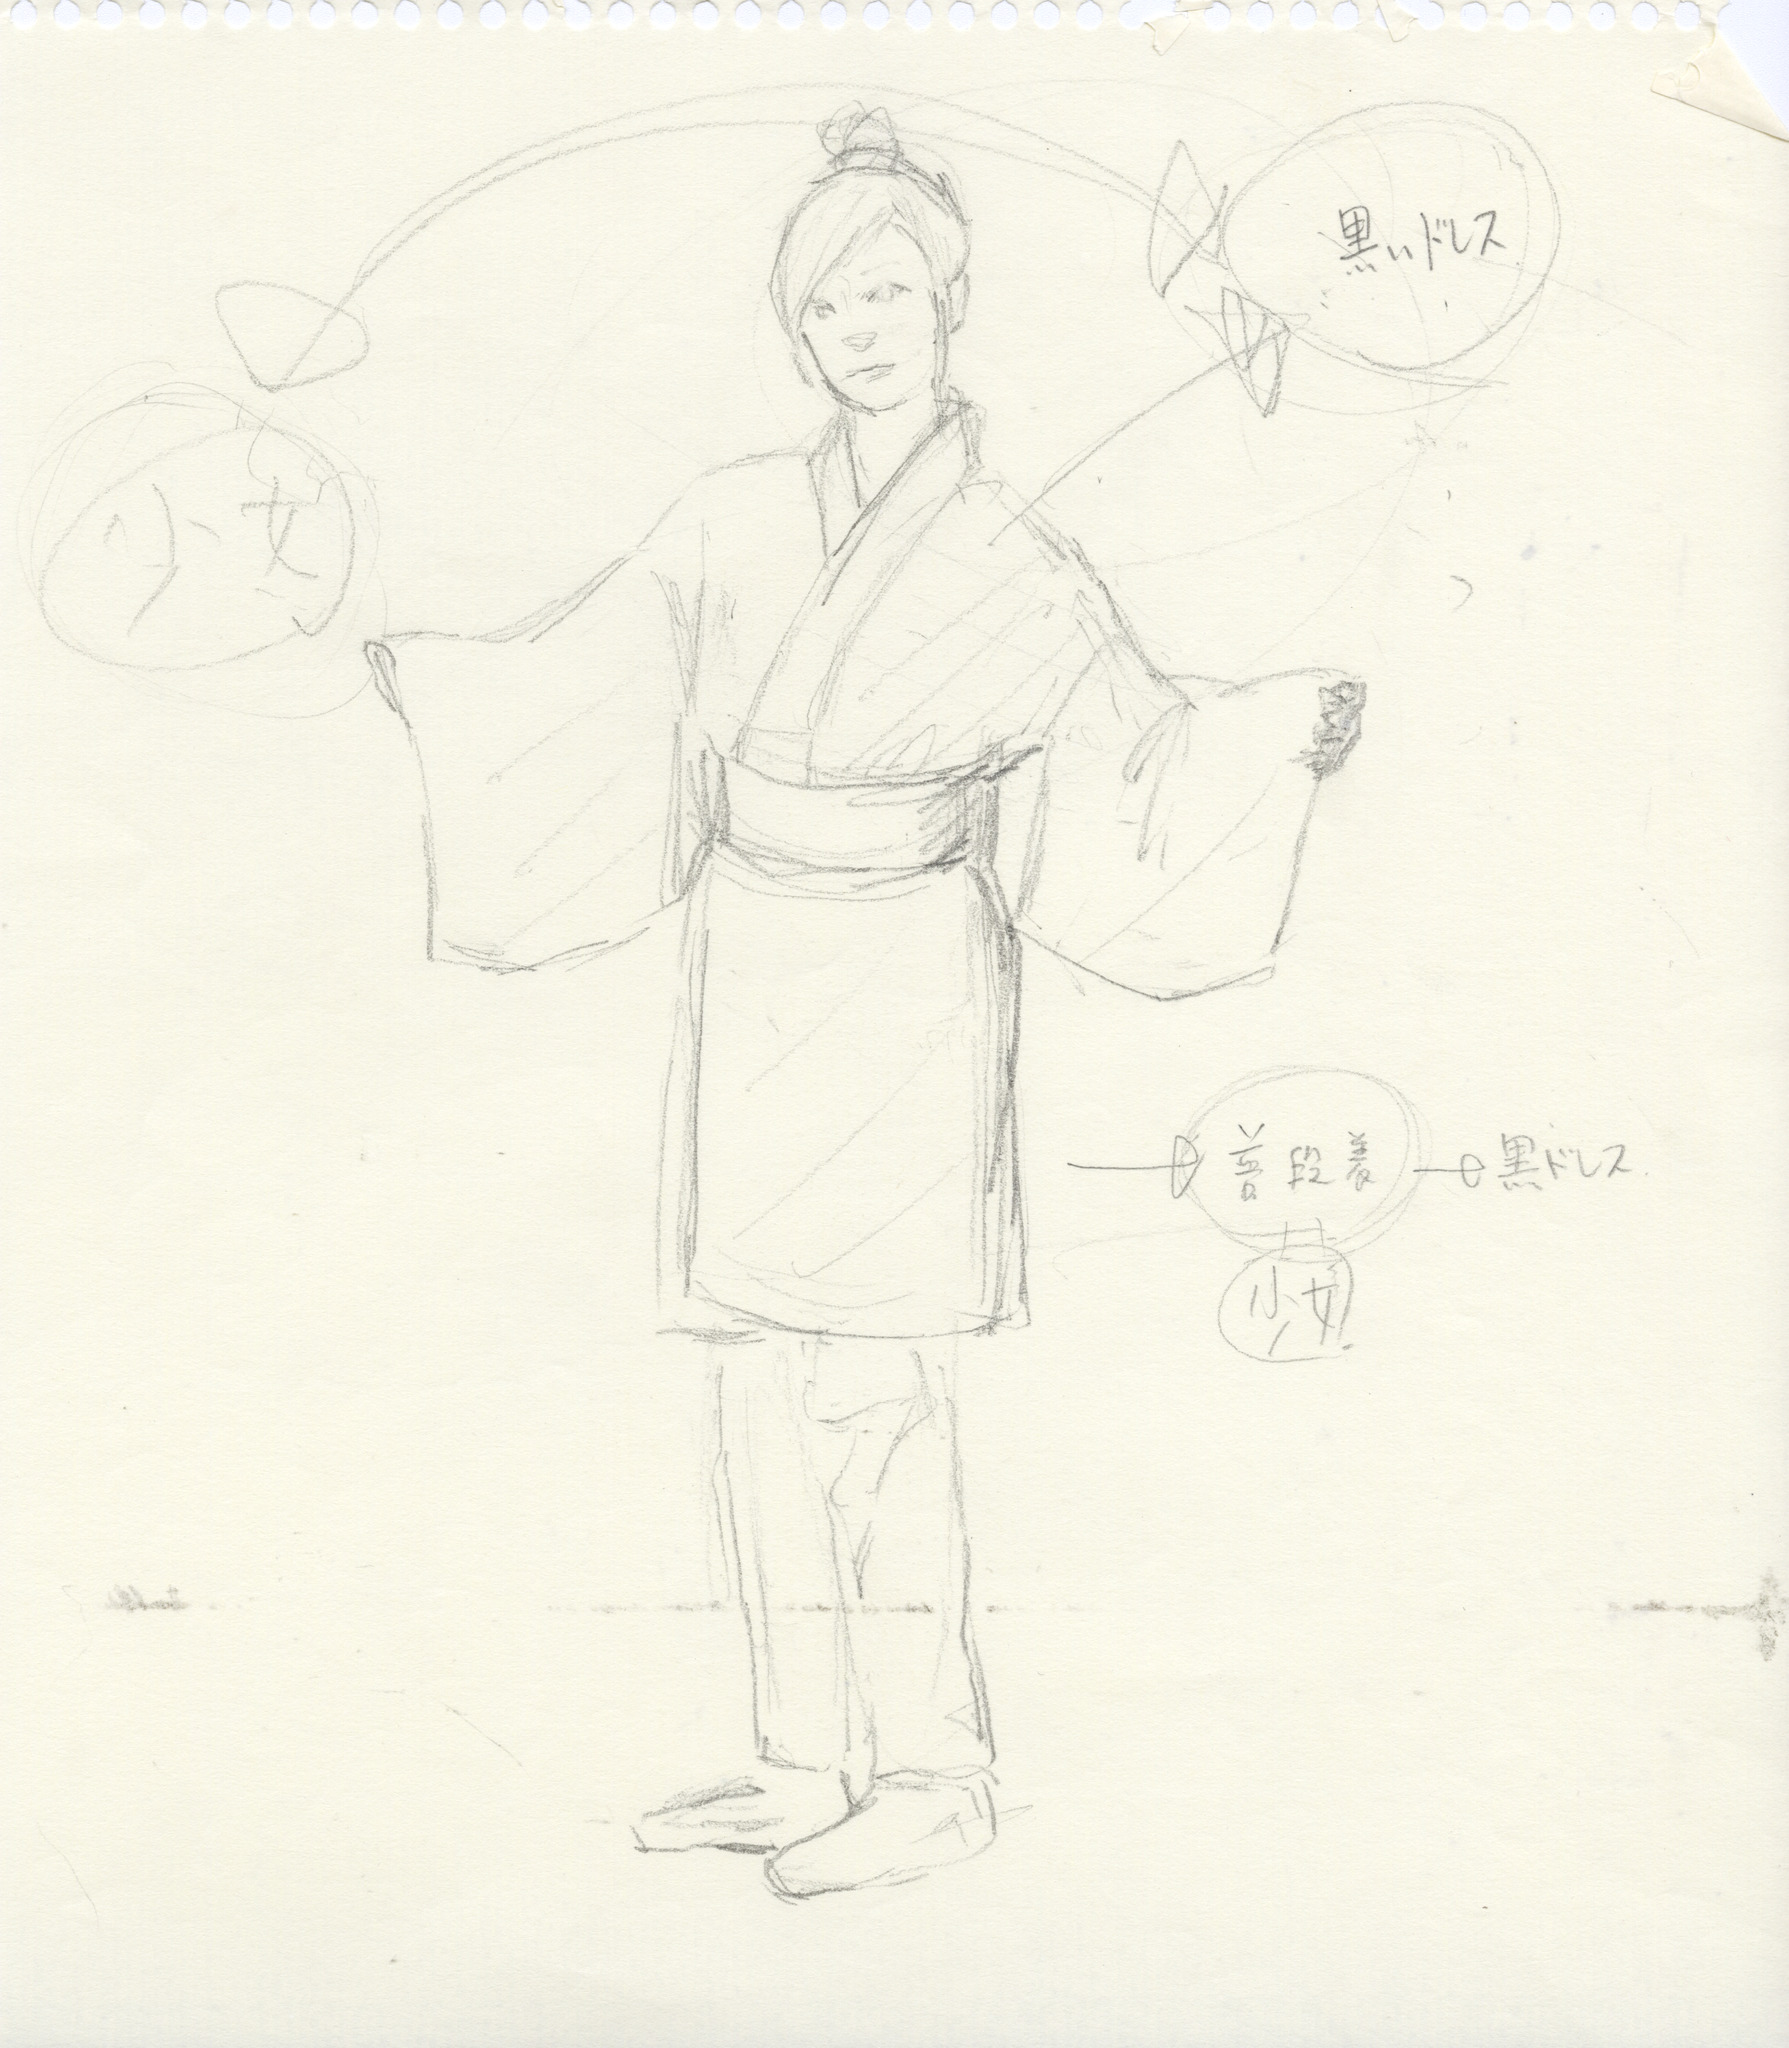 黒いドレス
少女
普段着
黒ドレス
少女